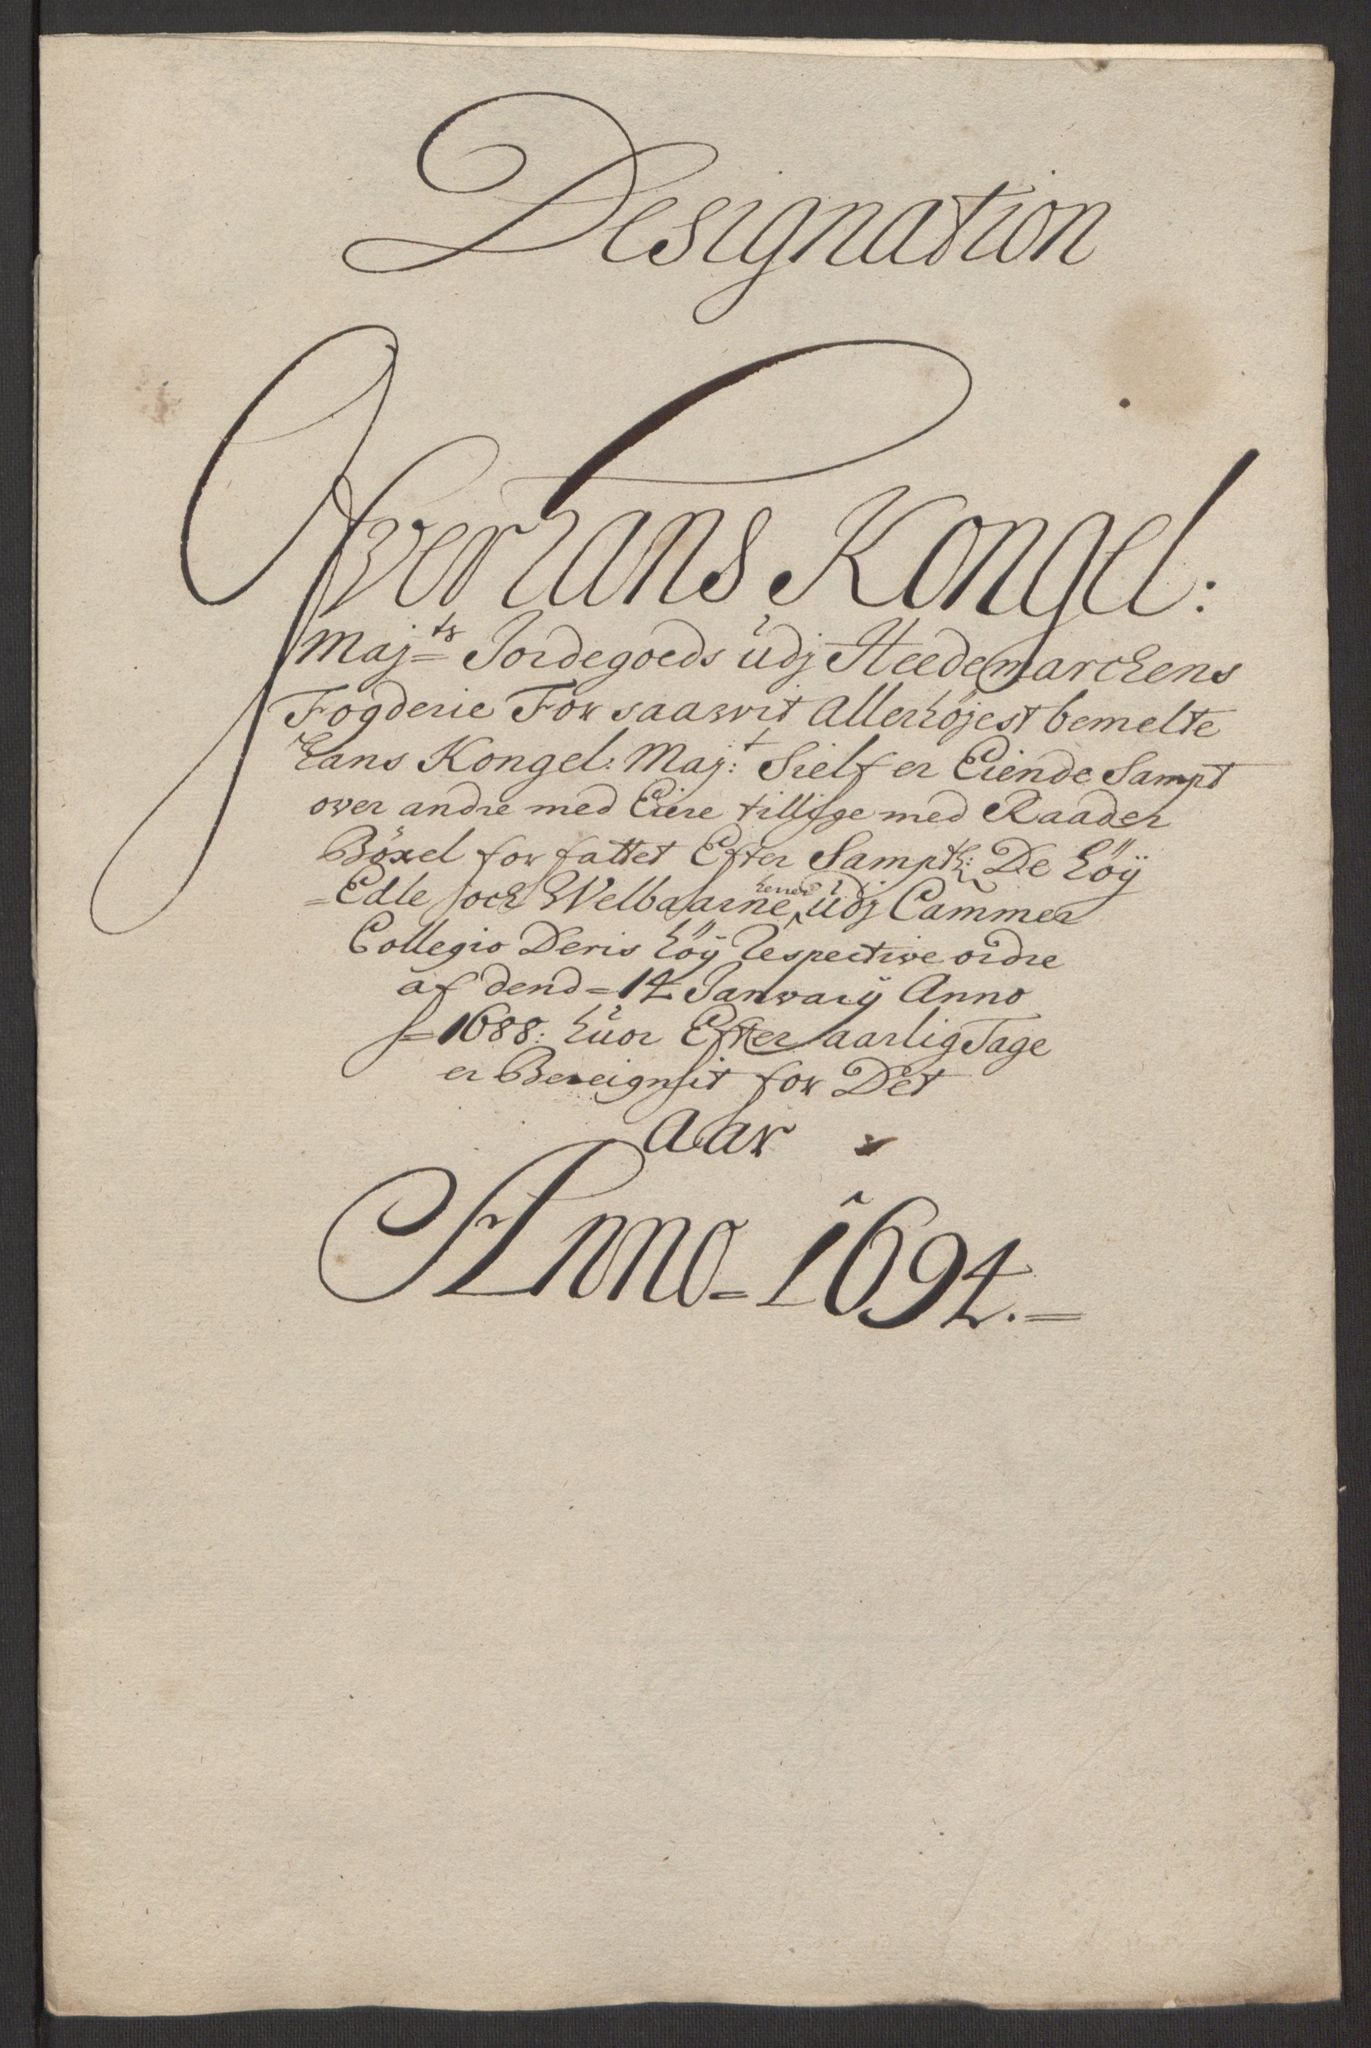 Designation
Over hans Kongel:
Maj:ts Jordegoeds udj Heedemarchens
Fogderie For saawit Allerhøjest bemelte
hans Kongel: Maj:t Sielf er Eiende Sampt
over andre med Eiere tillige med Raader
Böxel for fattet Efter Sampth: De höÿ
=Edle och Welbaarne herrer udj Cammer
Collegio Deris höÿ Respective ordre
af dend = 14 Janwarÿ Anno
= 1688: huor Efter aarlig Tage
er Bereignsit for Det
aar
Anno = 1694. =